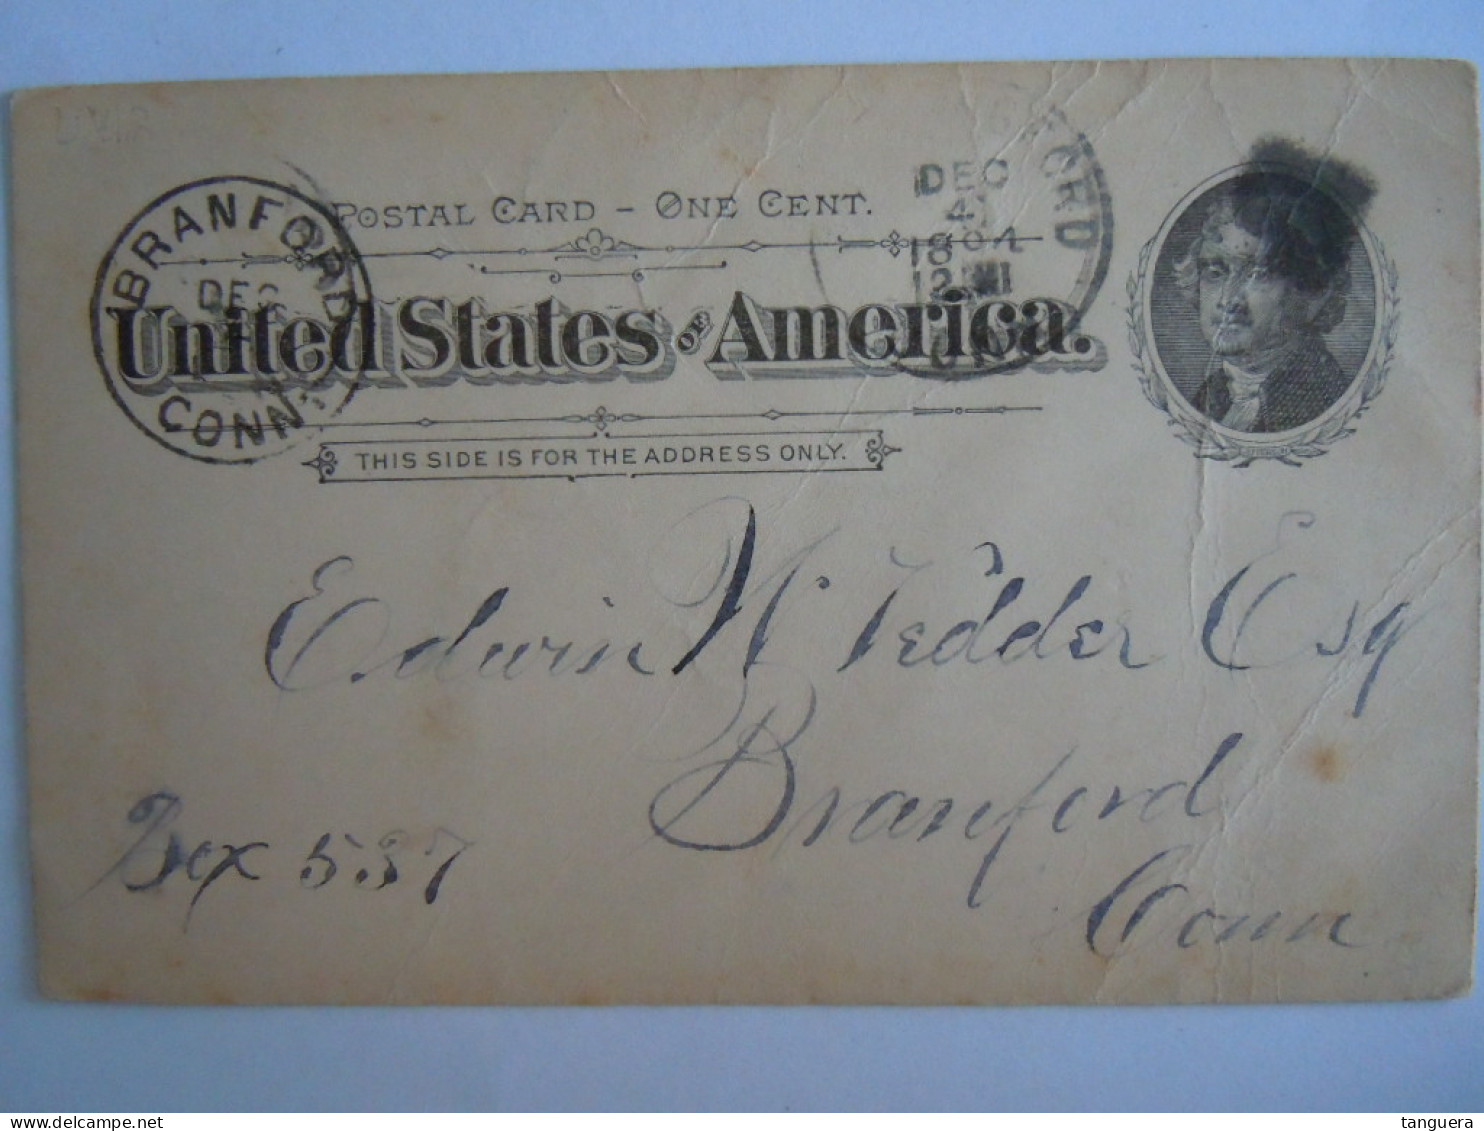 POSTAL CARD - ONE CENT.
United States OF America.
THIS SIDE IS FOR THE ADDRESS ONLY.
BRANFORD
DEC
4
CONN.
ORD
DEC
4
12
Edwin W Tedder Esq
Branford
Conn
Box 537
tanguera